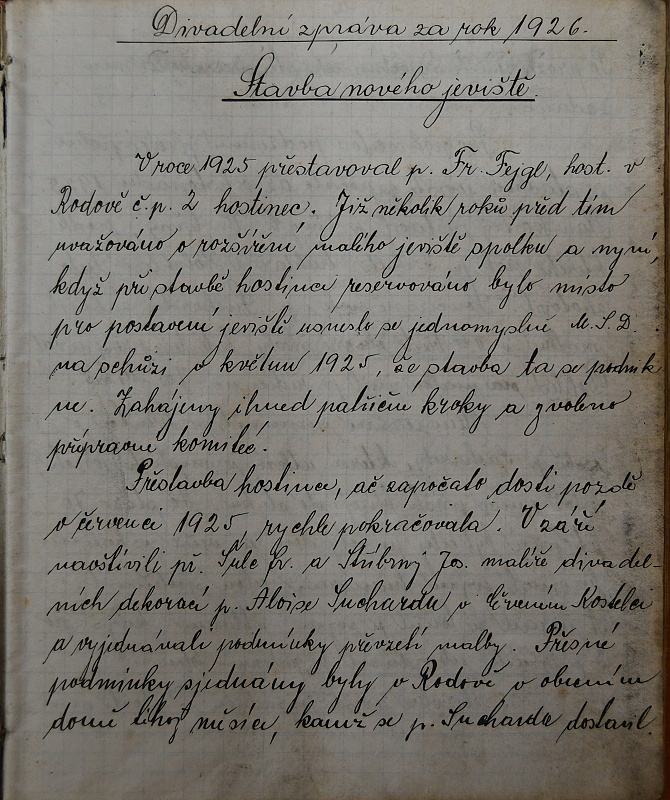 Divadelní zpráva za rok 1926.
Stavba nového jeviště.
V roce 1925 přestavoval p. Fr. Fejgl, host. v
Rodově č.p. 2 hostinec. Již několik roků před tím
uvažováno o rozšíření malého jeviště spolku a nyní,
když při stavbě hostince reservováno bylo místo
pro postavení jeviště usneslo se jednomyslně M.S.D.
na schůzi v květnu 1925, že stavba ta se podnik
ne. Zahájeny ihned patřičné kroky a zvoleno
přípravné komité.
Přestavba hostince, ač započato dosti pozdě
v červenci 1925, rychle pokračovala. V září
navštívili př. Šulc Fr. a Stříbrný Jos. malíře divadel-
ních dekorací p. Aloise Suchardu v Červeném Kostelci
a vyjednávali podmínky převzetí malby. Přesné
podmínky sjednány byly v Rodově v obecním
domě téhož měsíce, kamž se p. Sucharda dostavil.